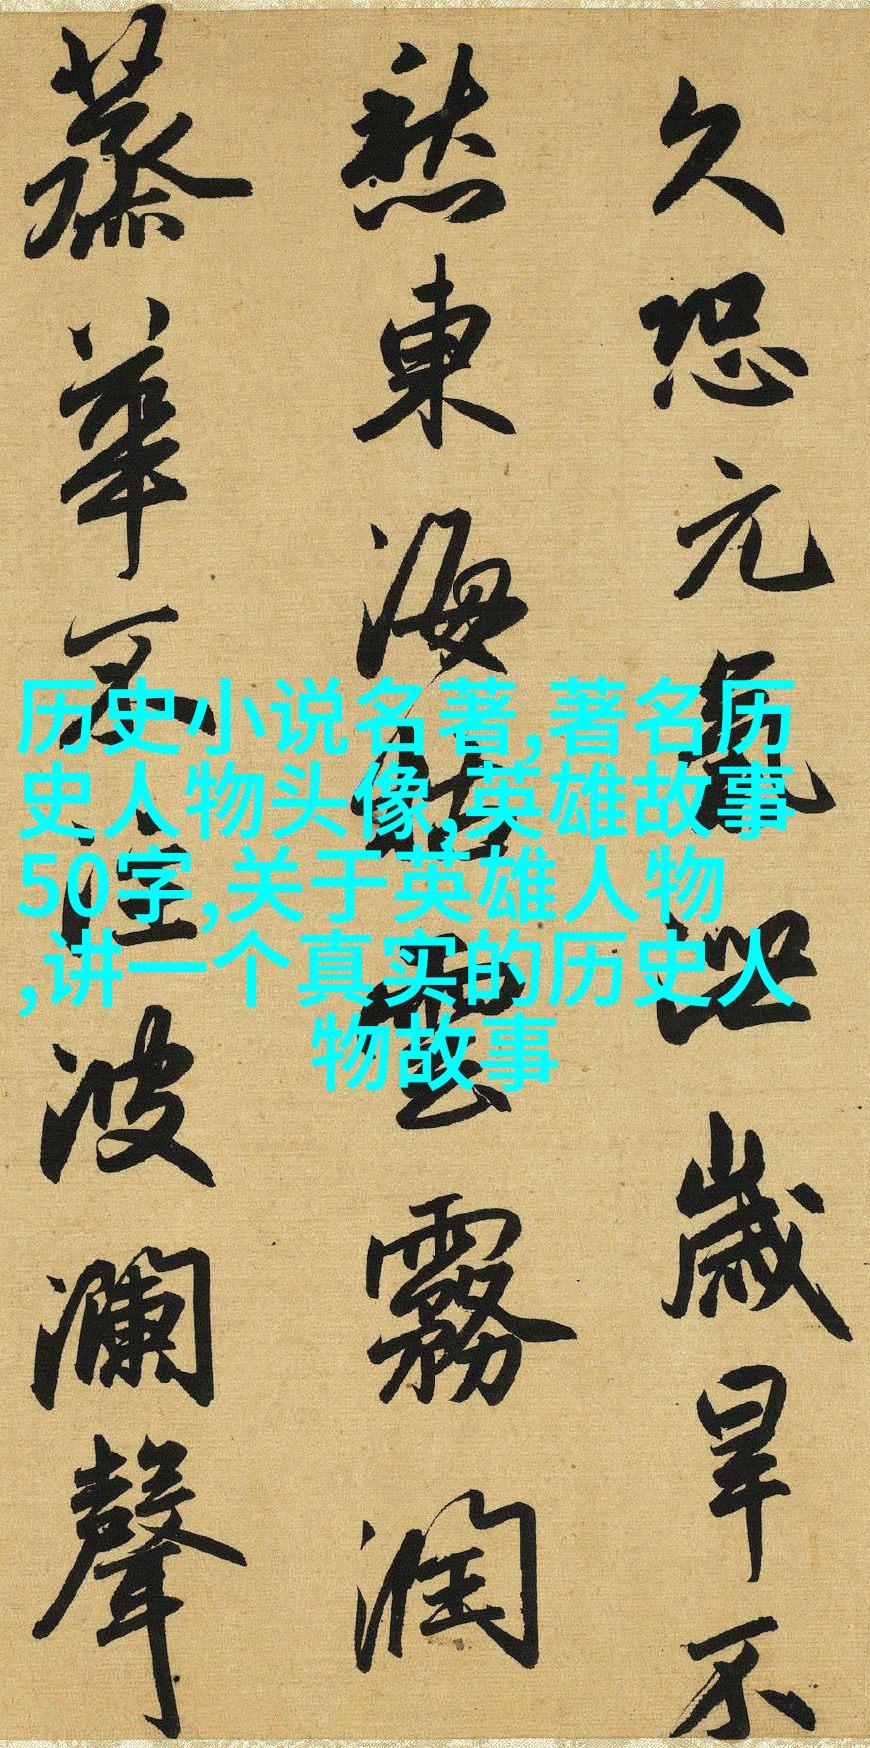 久恐元氣泄歲旱不
愁東海枯雲霧潤
蒸華不注波瀾聲
历史小说名著,著名历
史人物头像,英雄故事
50字,关于英雄人物
,讲一个真实的历史人
物故事